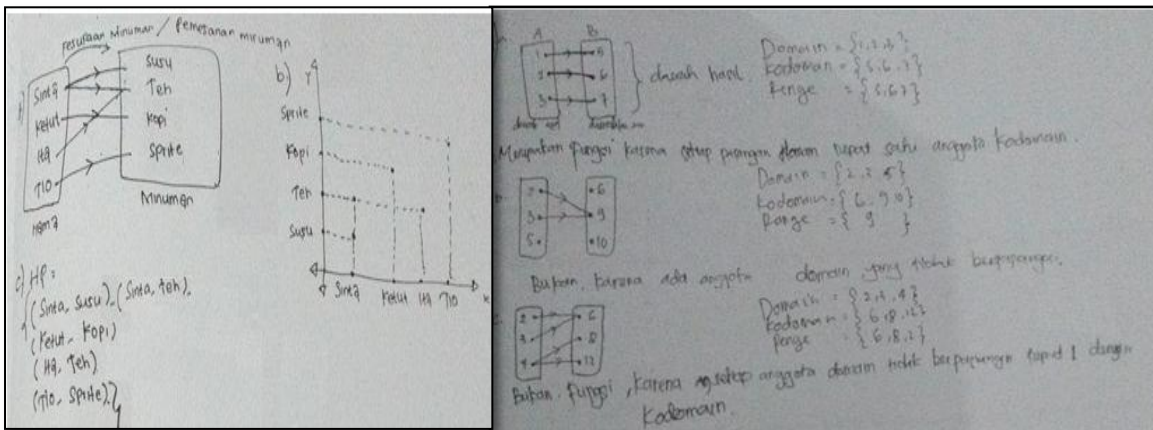 Pesusaan Minuman / Pemesanan minuman
a)
Sinta
Ketut
Ita
Tio
Nama
Susu
Teh
Kopi
Sprite
Minuman
b) Y
Sprite
Kopi
Teh
Susu
Sinta Ketut Ita Tio x
c) HP =
{(Sinta, susu), (Sinta, teh),
(Ketut, Kopi)
(Ita, Teh)
(Tio, Sprite)}
A B
1 5
2 6
3 7
daerah hasil
daerah
Domain = {1, 2, 3}
Kodomain = {5, 6, 7}
Range = {5, 6, 7}
Merupakan fungsi karena setiap pasangan domain tepat satu anggota kodomain.
2 6
3 9
5 10
Domain = {2, 3, 5}
Kodomain = {6, 9, 10}
Range = {9}
Bukan, karena ada anggota domain yang tidak berpasangan.
2 6
3 8
4 12
Domain = {2, 3, 4}
Kodomain = {6, 8, 12}
Range = {6, 8, 12}
Bukan fungsi, karena setiap anggota domain tidak berpasangan tepat 1 dengan
Kodomain.